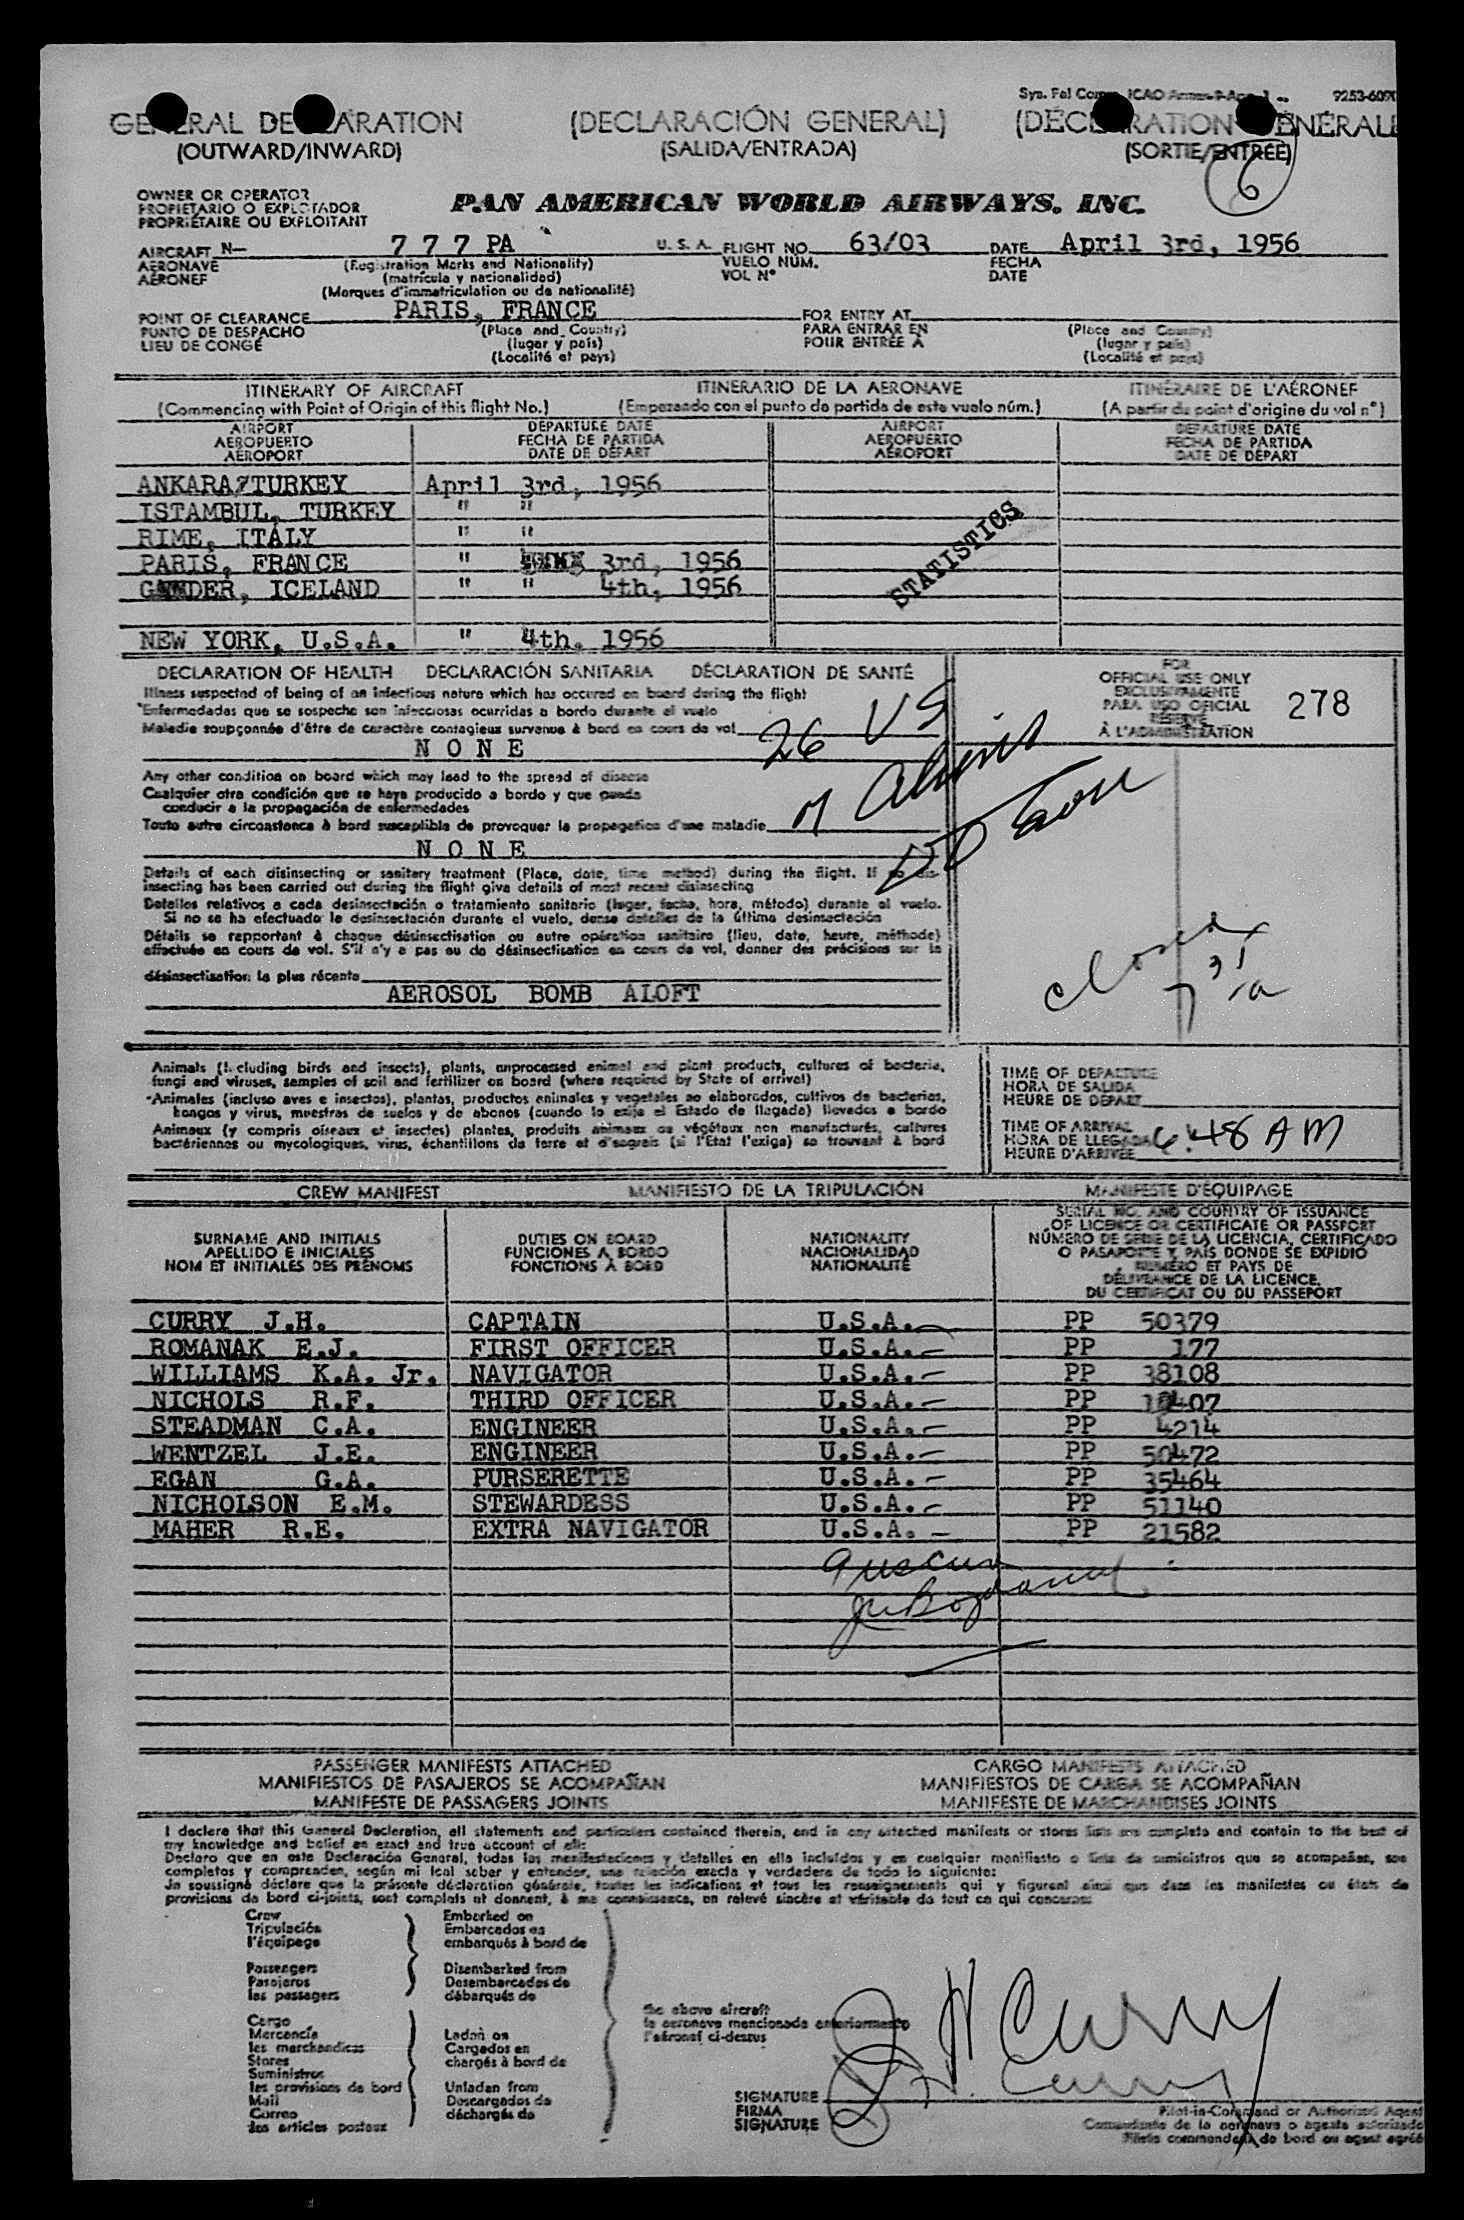 GENERAL DECLARATION
(OUTWARD/INWARD)
(DECLARACIÓN GENERAL)
(SALIDA/ENTRADA)
9253-6090
(DÉCLARATION GÉNÉRALE
(SORTIE/ENTRÉE)
6
OWNER OR OPERATOR
PROPIETARIO O EXPLOTADOR
PROPRIÉTAIRE OU EXPLOITANT
PAN AMERICAN WORLD AIRWAYS, INC.
AIRCRAFT N- 7 7 7 PA U. S. A. FLIGHT NO. 63/03 DATE April 3rd, 1956
AERONAVE (Registration Marks and Nationality) VUELO NÚM. FECHA
AÉRONEF (matrícula y nacionalidad) VOL Nº DATE
(Marques d'immatriculation ou de nationalité)
POINT OF CLEARANCE PARIS, FRANCE FOR ENTRY AT
PUNTO DE DESPACHO (Place and Country) PARA ENTRAR EN (Place and Country)
LIEU DE CONGÉ (lugar y país) POUR ENTRÉE À (lugar y país)
(Localité et pays) (Localité et pays)
ITINERARY OF AIRCRAFT ITINERARIO DE LA AERONAVE ITINÉRAIRE DE L'AÉRONEF
(Commencing with Point of Origin of this flight No.) (Empezando con el punto de partida de este vuelo núm.) (A partir du point d'origine du vol nº)
AIRPORT DEPARTURE DATE AIRPORT DEPARTURE DATE
AEROPUERTO FECHA DE PARTIDA AEROPUERTO FECHA DE PARTIDA
AÉROPORT DATE DE DÉPART AÉROPORT DATE DE DÉPART
ANKARA,TURKEY April 3rd, 1956
ISTAMBUL, TURKEY " "
RIME, ITALY " "
PARIS, FRANCE " 3rd, 1956
ICELAND " " 4th, 1956
NEW YORK, U.S.A. " 4th. 1956
STATISTICS
DECLARATION OF HEALTH DECLARACIÓN SANITARIA DÉCLARATION DE SANTÉ
Illness suspected of being of an infectious nature which has occured on board during the flight
Enfermedades que se sospeche son infecciosas ocurridas a bordo durante el vuelo
Maladie soupçonnée d'être de caractère contagieux survenue à bord en cours de vol
N O N E
26 US
Aliens
FOR
OFFICIAL USE ONLY
EXCLUSIVAMENTE
PARA USO OFICIAL
RÉSERVÉ
À L'ADMINISTRATION
278
Any other condition on board which may lead to the spread of disease
Cualquier otra condición que se haya producido a bordo y que pueda
conducir a la propagación de enfermedades
Toute autre circonstance à bord susceptible de provoquer la propagation d'une maladie
N O N E
Details of each disinsecting or sanitary treatment (Place, date, time method) during the flight. If no dis-
insecting has been carried out during the flight give details of most recent disinsecting
Detalles relativos a cada desinsectación o tratamiento sanitario (lugar, fecha, hora, método) durante el vuelo.
Si no se ha efectuado la desinsectación durante el vuelo, dense detalles de la última desinsectación
Détails se rapportant à chaque désinsectisation ou autre opération sanitaire (lieu, date, heure, méthode)
effectuée en cours de vol. S'il n'y a pas eu de désinsectisation en cours de vol, donner des précisions sur la
désinsectisation la plus récente
AEROSOL BOMB ALOFT
Animals (Including birds and insects), plants, unprocessed animal and plant products, cultures of bacteria,
fungi and viruses, samples of soil and fertilizer on board (where required by State of arrival)
Animales (incluso aves e insectos), plantas, productos animales y vegetales no elaborados, cultivos de bacterias,
hongos y virus, muestras de suelos y de abonos (cuando lo exija el Estado de llegada) llevados a bordo
Animaux (y compris oiseaux et insectes) plantes, produits animaux ou végétaux non manufacturés, cultures
bactériennes ou mycologiques, virus, échantillons de terre et d'engrais (si l'État l'exige) se trouvant à bord
TIME OF DEPARTURE
HORA DE SALIDA
HEURE DE DÉPART
TIME OF ARRIVAL
HORA DE LLEGADA 6:48 AM
HEURE D'ARRIVÉE
CREW MANIFEST MANIFIESTO DE LA TRIPULACIÓN MANIFESTE D'ÉQUIPAGE
SURNAME AND INITIALS
APELLIDO E INICIALES
NOM ET INITIALES DES PRÉNOMS
DUTIES ON BOARD
FUNCIONES A BORDO
FONCTIONS À BORD
NATIONALITY
NACIONALIDAD
NATIONALITÉ
SERIAL NO. AND COUNTRY OF ISSUANCE
OF LICENCE OR CERTIFICATE OR PASSPORT
NÚMERO DE SERIE DE LA LICENCIA, CERTIFICADO
O PASAPORTE Y PAÍS DONDE SE EXPIDIÓ
NUMÉRO ET PAYS DE
DÉLIVRANCE DE LA LICENCE,
DU CERTIFICAT OU DU PASSEPORT
CURRY J.H. CAPTAIN U.S.A. PP 50379
ROMANAK E.J. FIRST OFFICER U.S.A. PP 177
WILLIAMS K.A. Jr. NAVIGATOR U.S.A. PP 38108
NICHOLS R.F. THIRD OFFICER U.S.A. PP
STEADMAN C.A. ENGINEER U.S.A. PP 4214
WENTZEL J.E. ENGINEER U.S.A. PP 50472
EGAN G.A. PURSERETTE U.S.A. PP 35464
NICHOLSON E.M. STEWARDESS U.S.A. PP 51140
MAHER R.E. EXTRA NAVIGATOR U.S.A. PP 21582
PASSENGER MANIFESTS ATTACHED CARGO MANIFESTS ATTACHED
MANIFIESTOS DE PASAJEROS SE ACOMPAÑAN MANIFIESTOS DE CARGA SE ACOMPAÑAN
MANIFESTE DE PASSAGERS JOINTS MANIFESTE DE MARCHANDISES JOINTS
I declare that this General Declaration, all statements and particulars contained therein, and in any attached manifests or stores lists are complete and contain to the best of
my knowledge and belief an exact and true account of all:
Declaro que en esta Declaración General, todas las manifestaciones y detalles en ella incluídos y en cualquier manifiesto o lista de suministros que se acompañen, son
completos y comprenden, según mi leal saber y entender, una relación exacta y verdadera de todo lo siguiente:
Je soussigné déclare que la présente déclaration générale, toutes les indications et tous les renseignements qui y figurent ainsi que dans les manifestes ou états de
provisions de bord ci-joints, sont complets et donnent, à ma connaissance, un relevé sincère et véritable de tout ce qui concerne:
Crew
Tripulación
l'équipage
Passengers
Pasajeros
les passagers
Cargo
Mercancía
les marchandises
Stores
Suministros
les provisions de bord
Mail
Correo
les articles postaux
Embarked on
Embarcados en
embarqués à bord de
Disembarked from
Desembarcados de
débarqués de
Laden on
Cargados en
chargés à bord de
Unladen from
Descargados de
déchargés de
the above aircraft
la aeronave mencionada anteriormente
l'aéronef ci-dessus
J H Curry
SIGNATURE
FIRMA
SIGNATURE
Pilot-in-Command or Authorized Agent
Comandante de la aeronave o agente autorizado
Pilote commandant de bord ou agent agréé